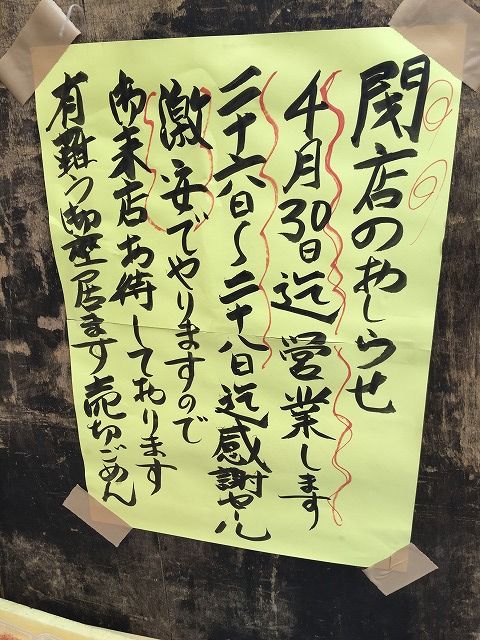 閉店のおしらせ
4月30日迄営業します
二十六日〜二十八日迄感謝セール
激安でやりますので
御来店お待しております
有難う御座居ます売切ごめん